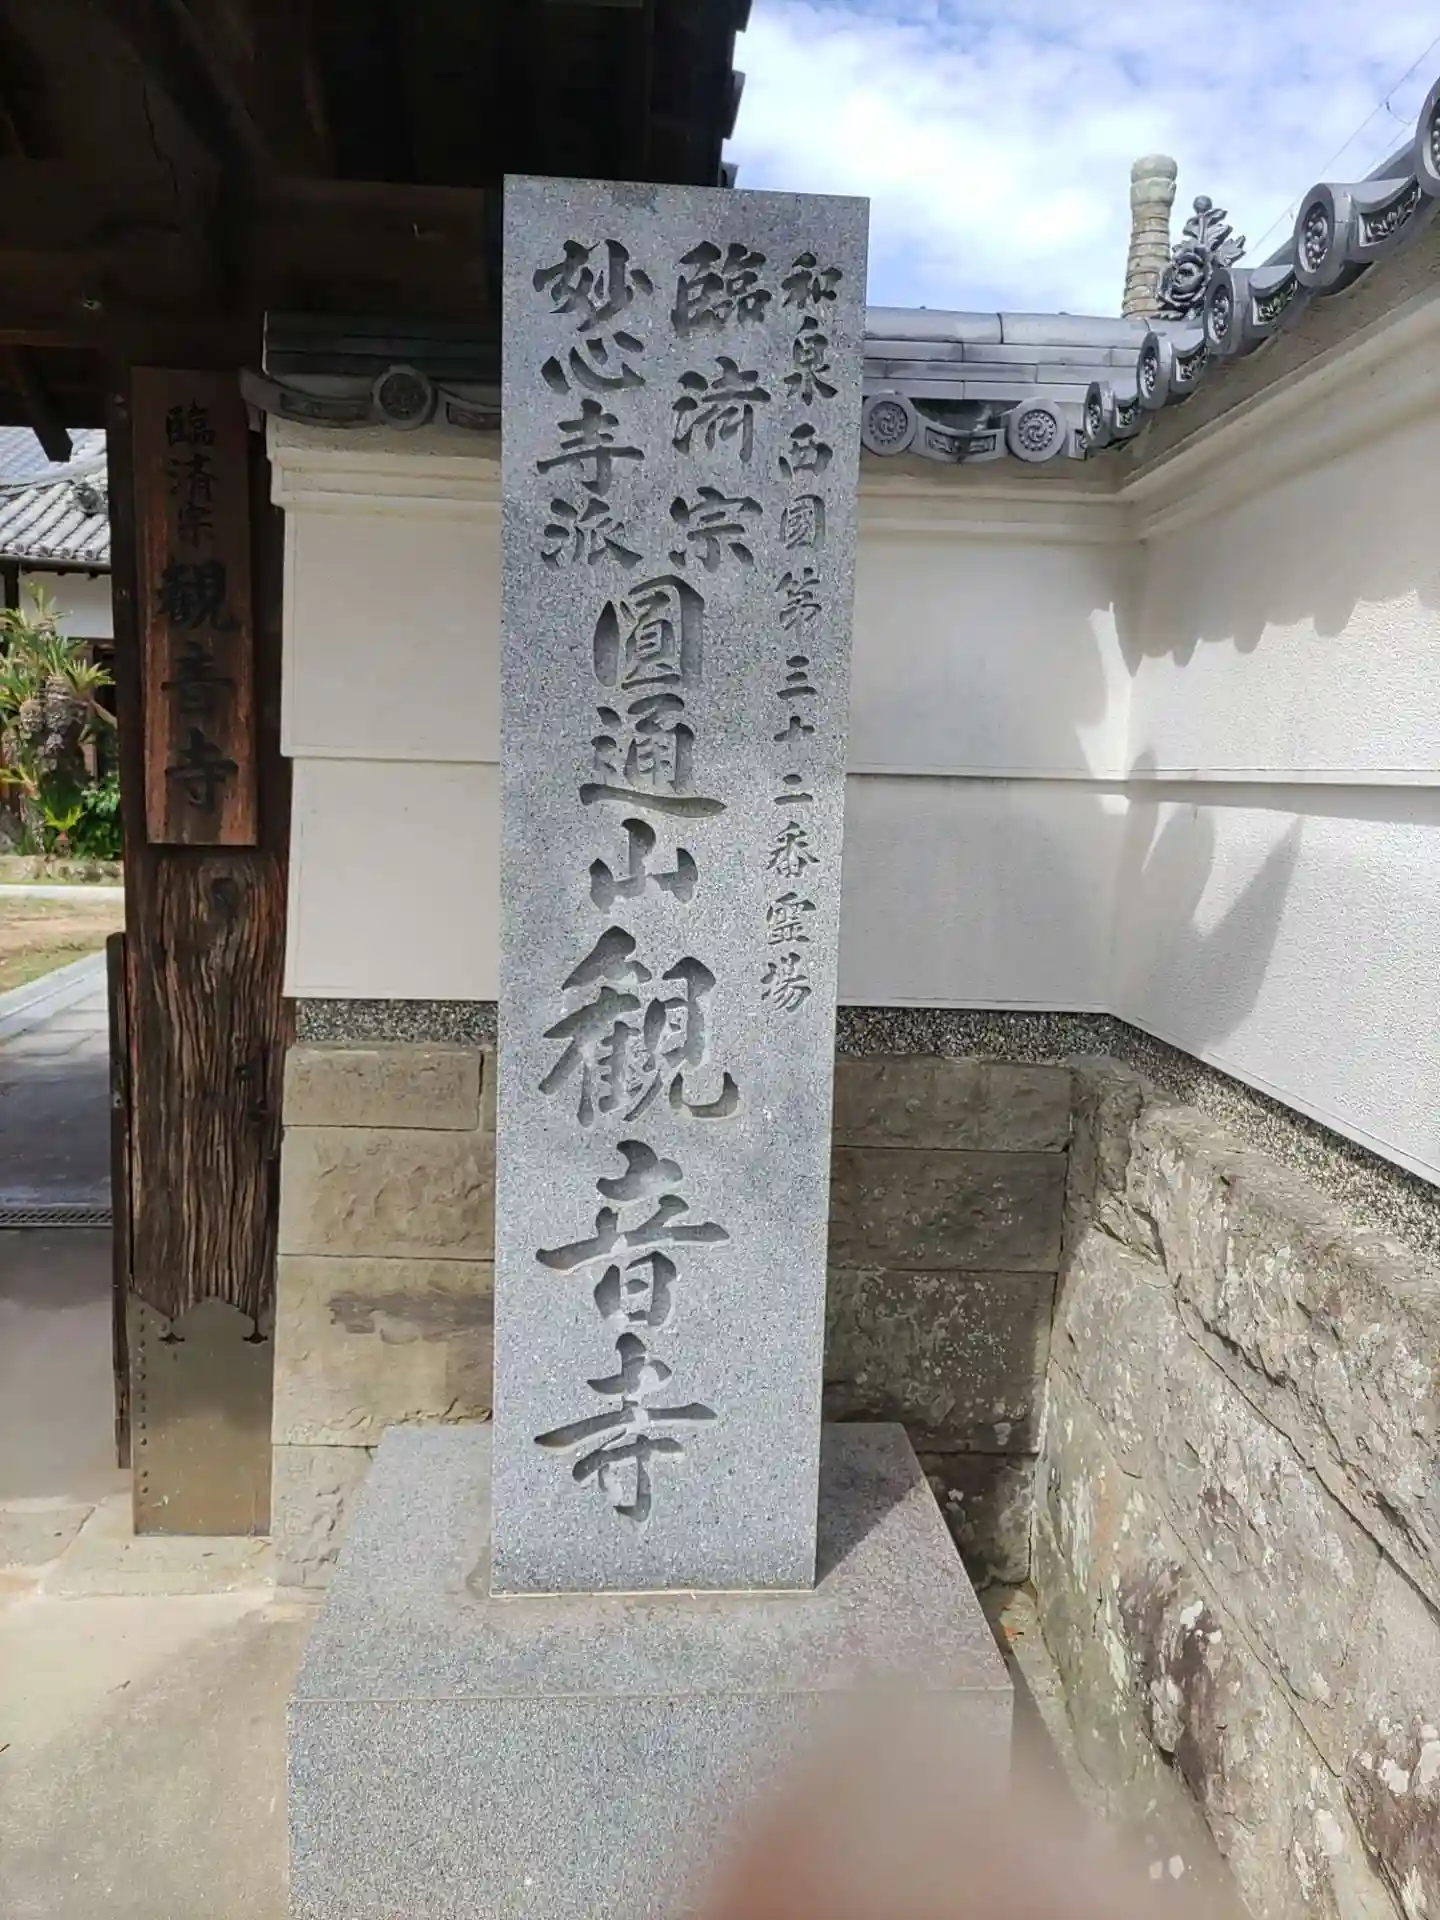 和泉西國第三十二番霊場
臨済宗
妙心寺派
圓通山観音寺
臨済宗観音寺